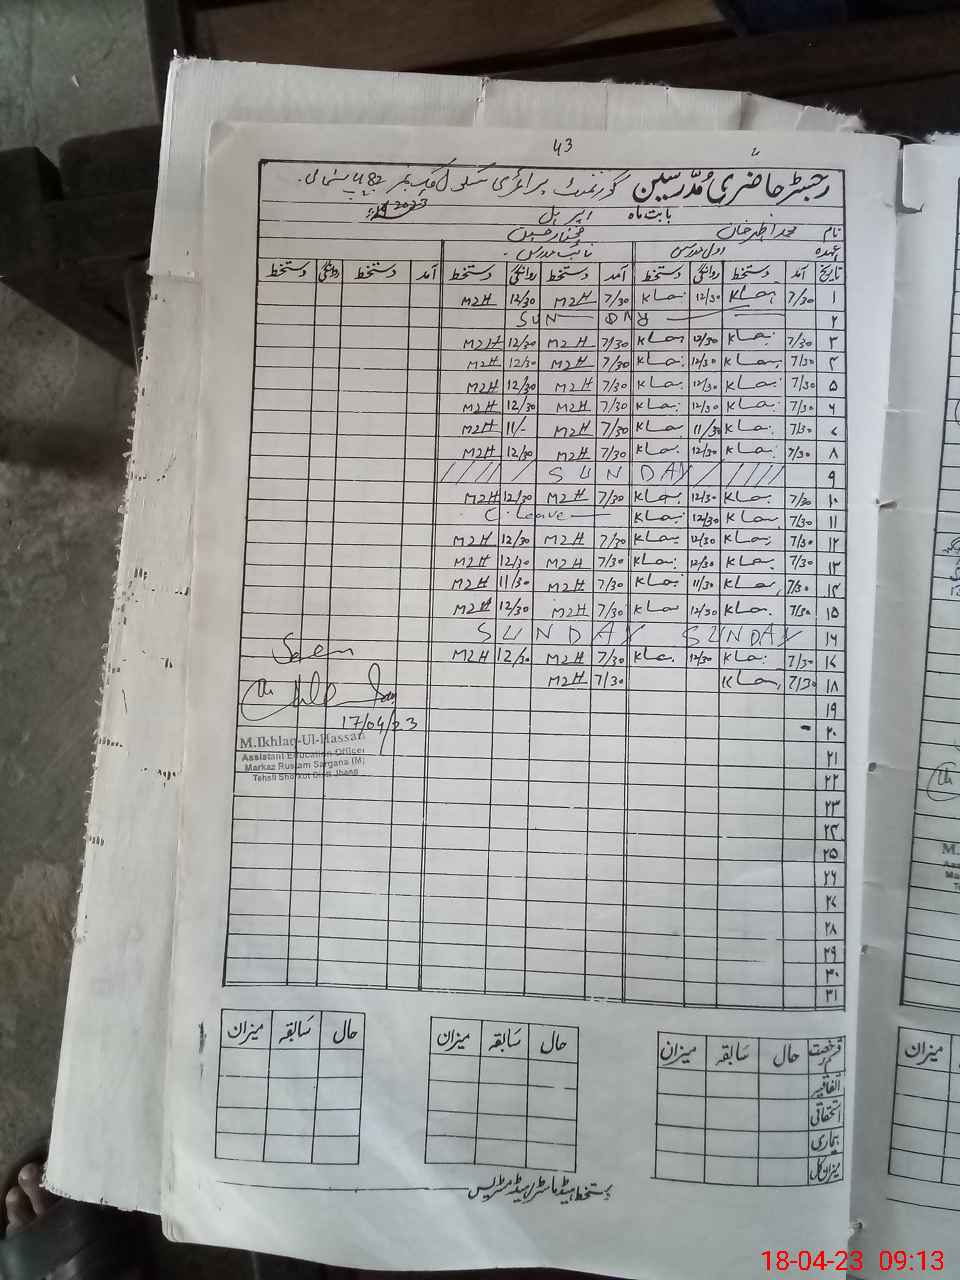 43
رجسٹر حاضری مُدرّسین گورنمنٹ پرائمری سکول
بابت ماہ اپریل 2023
نام محمد اظہر خان مختار حسین
عہدہ اول مدرس نائب مدرس
تاریخ آمد دستخط روانگی دستخط آمد دستخط روانگی دستخط آمد دستخط روانگی دستخط
۱ 7/30 12/30 7/30 M2H 12/30 M2H
۲ SUN DAY
۳ 7/30 12/30 7/30 M2H 12/30 M2H
۴ 7/30 12/30 7/30 M2H 12/30 M2H
۵ 7/30 12/30 7/30 M2H 12/30 M2H
۶ 7/30 12/30 7/30 M2H 12/30 M2H
۷ 7/30 11/30 7/30 M2H 11/- M2H
۸ 7/30 12/30 7/30 M2H 12/30 M2H
۹ SUNDAY
۱۰ 7/30 12/30 7/30 M2H 12/30 M2H
۱۱ 7/30 12/30 C. Leave
۱۲ 7/30 12/30 7/30 M2H 12/30 M2H
۱۳ 7/30 12/30 7/30 M2H 12/30 M2H
۱۴ 7/30 11/30 7/30 M2H 11/30 M2H
۱۵ 7/30 12/30 7/30 M2H 12/30 M2H
۱۶ SUNDAY SUNDAY
۱۷ 7/30 12/30 7/30 M2H 12/30 M2H
۱۸ 7/30 7/30 M2H
۱۹
۲۰
۲۱
۲۲
۲۳
۲۴
۲۵
۲۶
۲۷
۲۸
۲۹
۳۰
۳۱
17/04/23
M.Ikhlaq-Ul-Hassan
Assistant Education Officer
Markaz Rustam Sargana (M)
Tehsil Shorkot Distt Jhang
حال سابقہ میزان
حال سابقہ میزان
حال سابقہ میزان
اتفاقیہ
استحقاقی
بیماری
میزان کل
دستخط ہیڈ ماسٹر/ہیڈ مسٹریس
میزان
18-04-23 09:13